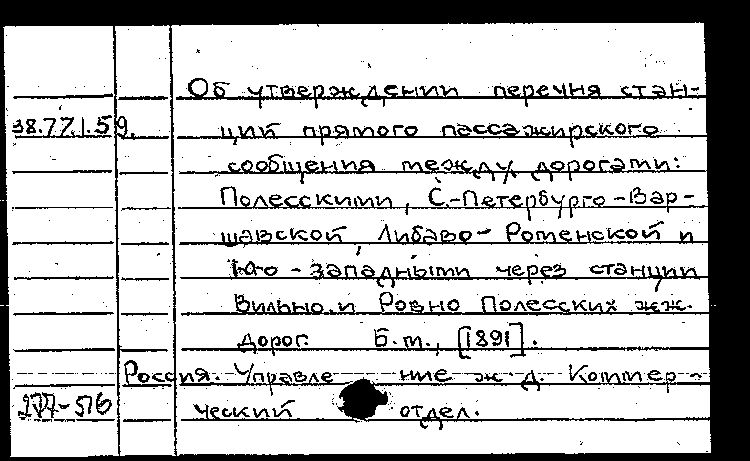 Об утверждении перечня стан-
38.77.1.59. ций прямого пассажирского
сообщения между дорогами:
Полесскими, С.-Петербурго-Вар-
шавской, Либаво-Роменской и
Юго-западными через станции
Вильно и Ровно Полесских жж.
дорог. Б.м., [1891].
Россия. Управление ж.д. Коммер-
277-516 ческий отдел.